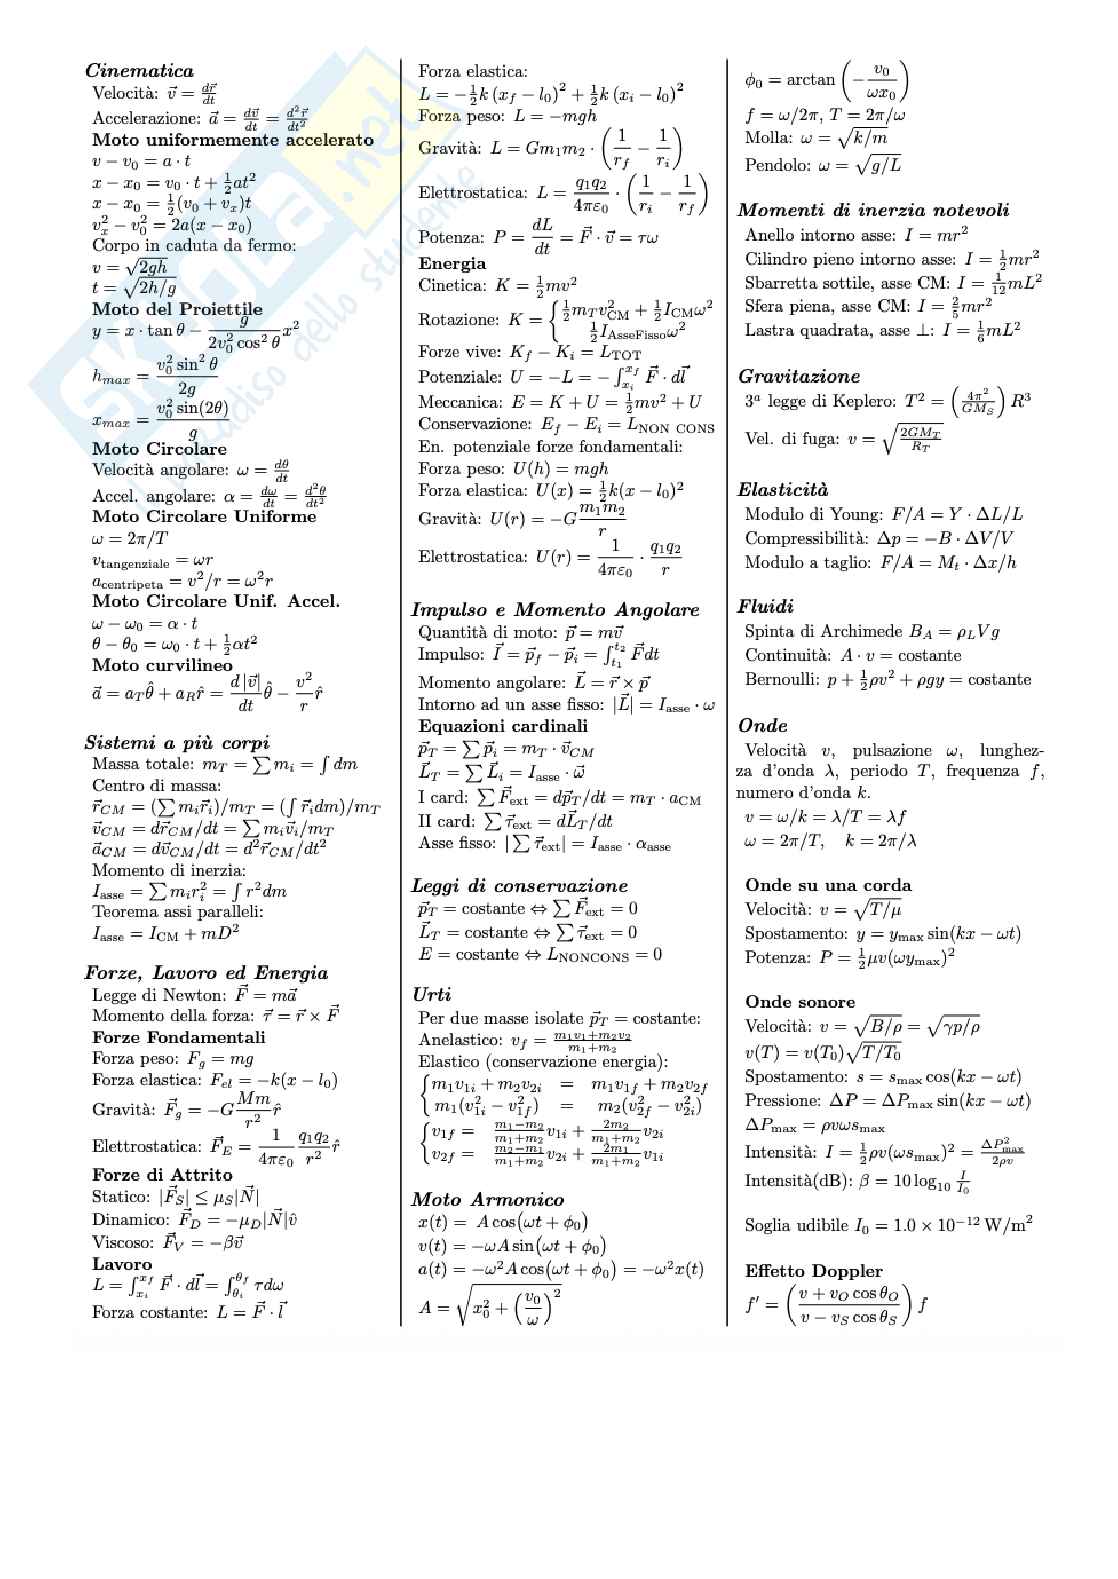 Cinematica
Velocità: v⃗ = dr⃗/dt
Accelerazione: a⃗ = dv⃗/dt = d²r⃗/dt²
Moto uniformemente accelerato
v − v₀ = a · t
x − x₀ = v₀ · t + ½at²
x − x₀ = ½(v₀ + vₓ)t
vₓ² − v₀² = 2a(x − x₀)
Corpo in caduta da fermo:
v = √(2gh)
t = √(2h/g)
Moto del Proiettile
y = x · tan θ − g/(2v₀² cos² θ) x²
h_max = v₀² sin² θ / 2g
x_max = v₀² sin(2θ) / g
Moto Circolare
Velocità angolare: ω = dθ/dt
Accel. angolare: α = dω/dt = d²θ/dt²
Moto Circolare Uniforme
ω = 2π/T
v_tangenziale = ωr
a_centripeta = v²/r = ω²r
Moto Circolare Unif. Accel.
ω − ω₀ = α · t
θ − θ₀ = ω₀ · t + ½αt²
Moto curvilineo
a⃗ = a_T θ̂ + a_R r̂ = d|v⃗|/dt θ̂ − v²/r r̂
Sistemi a più corpi
Massa totale: m_T = ∑ m_i = ∫ dm
Centro di massa:
r⃗_CM = (∑ m_i r⃗_i)/m_T = (∫ r⃗_i dm)/m_T
v⃗_CM = dr⃗_CM/dt = ∑ m_i v⃗_i/m_T
a⃗_CM = dv⃗_CM/dt = d²r⃗_CM/dt²
Momento di inerzia:
I_asse = ∑ m_i r_i² = ∫ r² dm
Teorema assi paralleli:
I_asse = I_CM + mD²
Forze, Lavoro ed Energia
Legge di Newton: F⃗ = ma⃗
Momento della forza: τ⃗ = r⃗ × F⃗
Forze Fondamentali
Forza peso: F_g = mg
Forza elastica: F_el = −k(x − l₀)
Gravità: F⃗_g = −G Mm/r² r̂
Elettrostatica: F⃗_E = 1/(4πε₀) q₁q₂/r² r̂
Forze di Attrito
Statico: |F⃗_S| ≤ μ_S|N⃗|
Dinamico: F⃗_D = −μ_D|N⃗|v̂
Viscoso: F⃗_V = −βv⃗
Lavoro
L = ∫_{x_i}^{x_f} F⃗ · dl⃗ = ∫_{θ_i}^{θ_f} τdω
Forza costante: L = F⃗ · l⃗
Forza elastica:
L = −½k (x_f − l₀)² + ½k (x_i − l₀)²
Forza peso: L = −mgh
Gravità: L = Gm₁m₂ · (1/r_f − 1/r_i)
Elettrostatica: L = q₁q₂/(4πε₀) · (1/r_i − 1/r_f)
Potenza: P = dL/dt = F⃗ · v⃗ = τω
Energia
Cinetica: K = ½mv²
Rotazione: K = { ½m_T v²_CM + ½I_CM ω²
½I_AsseFisso ω²
Forze vive: K_f − K_i = L_TOT
Potenziale: U = −L = − ∫_{x_i}^{x_f} F⃗ · dl⃗
Meccanica: E = K + U = ½mv² + U
Conservazione: E_f − E_i = L_NON CONS
En. potenziale forze fondamentali:
Forza peso: U(h) = mgh
Forza elastica: U(x) = ½k(x − l₀)²
Gravità: U(r) = −G m₁m₂/r
Elettrostatica: U(r) = 1/(4πε₀) · q₁q₂/r
Impulso e Momento Angolare
Quantità di moto: p⃗ = mv⃗
Impulso: I⃗ = p⃗_f − p⃗_i = ∫_{t₁}^{t₂} F⃗dt
Momento angolare: L⃗ = r⃗ × p⃗
Intorno ad un asse fisso: |L⃗| = I_asse · ω
Equazioni cardinali
p⃗_T = ∑ p⃗_i = m_T · v⃗_CM
L⃗_T = ∑ L⃗_i = I_asse · ω⃗
I card: ∑ F⃗_ext = dp⃗_T/dt = m_T · a_CM
II card: ∑ τ⃗_ext = dL⃗_T/dt
Asse fisso: |∑ τ⃗_ext| = I_asse · α_asse
Leggi di conservazione
p⃗_T = costante ⇔ ∑ F⃗_ext = 0
L⃗_T = costante ⇔ ∑ τ⃗_ext = 0
E = costante ⇔ L_NONCONS = 0
Urti
Per due masse isolate p⃗_T = costante:
Anelastico: v_f = (m₁v₁+m₂v₂)/(m₁+m₂)
Elastico (conservazione energia):
{ m₁v₁ᵢ + m₂v₂ᵢ = m₁v_1f + m₂v_2f
m₁(v²_1i − v²_1f) = m₂(v²_2f − v²_2i)
{ v_1f = (m₁−m₂)/(m₁+m₂) v_1i + 2m₂/(m₁+m₂) v_2i
v_2f = (m₂−m₁)/(m₁+m₂) v_2i + 2m₁/(m₁+m₂) v_1i
Moto Armonico
x(t) = A cos(ωt + ϕ₀)
v(t) = −ωA sin(ωt + ϕ₀)
a(t) = −ω²A cos(ωt + ϕ₀) = −ω²x(t)
A = √(x₀² + (v₀/ω)²)
ϕ₀ = arctan (−v₀/(ωx₀))
f = ω/2π, T = 2π/ω
Molla: ω = √(k/m)
Pendolo: ω = √(g/L)
Momenti di inerzia notevoli
Anello intorno asse: I = mr²
Cilindro pieno intorno asse: I = ½mr²
Sbarretta sottile, asse CM: I = 1/12 mL²
Sfera piena, asse CM: I = 2/5 mr²
Lastra quadrata, asse ⊥: I = 1/6 mL²
Gravitazione
3ᵃ legge di Keplero: T² = (4π²/GM_S) R³
Vel. di fuga: v = √(2GM_T/R_T)
Elasticità
Modulo di Young: F/A = Y · ΔL/L
Compressibilità: Δp = −B · ΔV/V
Modulo a taglio: F/A = M_t · Δx/h
Fluidi
Spinta di Archimede B_A = ρ_L V g
Continuità: A · v = costante
Bernoulli: p + ½ρv² + ρgy = costante
Onde
Velocità v, pulsazione ω, lunghez-
za d'onda λ, periodo T, frequenza f,
numero d'onda k.
v = ω/k = λ/T = λf
ω = 2π/T, k = 2π/λ
Onde su una corda
Velocità: v = √(T/μ)
Spostamento: y = y_max sin(kx − ωt)
Potenza: P = ½μv(ωy_max)²
Onde sonore
Velocità: v = √(B/ρ) = √(γp/ρ)
v(T) = v(T₀)√(T/T₀)
Spostamento: s = s_max cos(kx − ωt)
Pressione: ΔP = ΔP_max sin(kx − ωt)
ΔP_max = ρvωs_max
Intensità: I = ½ρv(ωs_max)² = ΔP²_max/2ρv
Intensità(dB): β = 10 log₁₀ I/I₀
Soglia udibile I₀ = 1.0 × 10⁻¹² W/m²
Effetto Doppler
f′ = ((v + v_O cos θ_O)/(v − v_S cos θ_S)) f
skuola.net
il paradiso dello studente